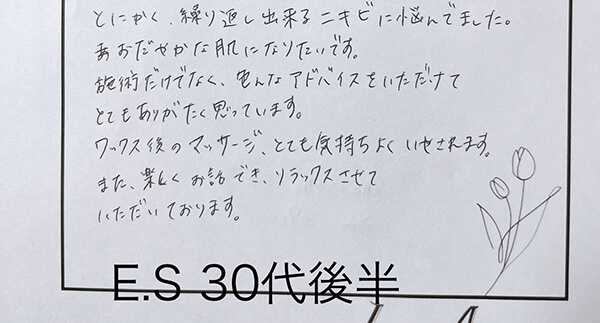 とにかく、繰り返し出来るニキビに悩んでました。
あおだやかな肌になりたいです。
施術だけでなく、色んなアドバイスをいただけて
とてもありがたく思っています。
ワックス後のマッサージ、とても気持ちよくいやされます。
また、楽しくお話でき、リラックスさせて
いただいております。
E.S 30代後半